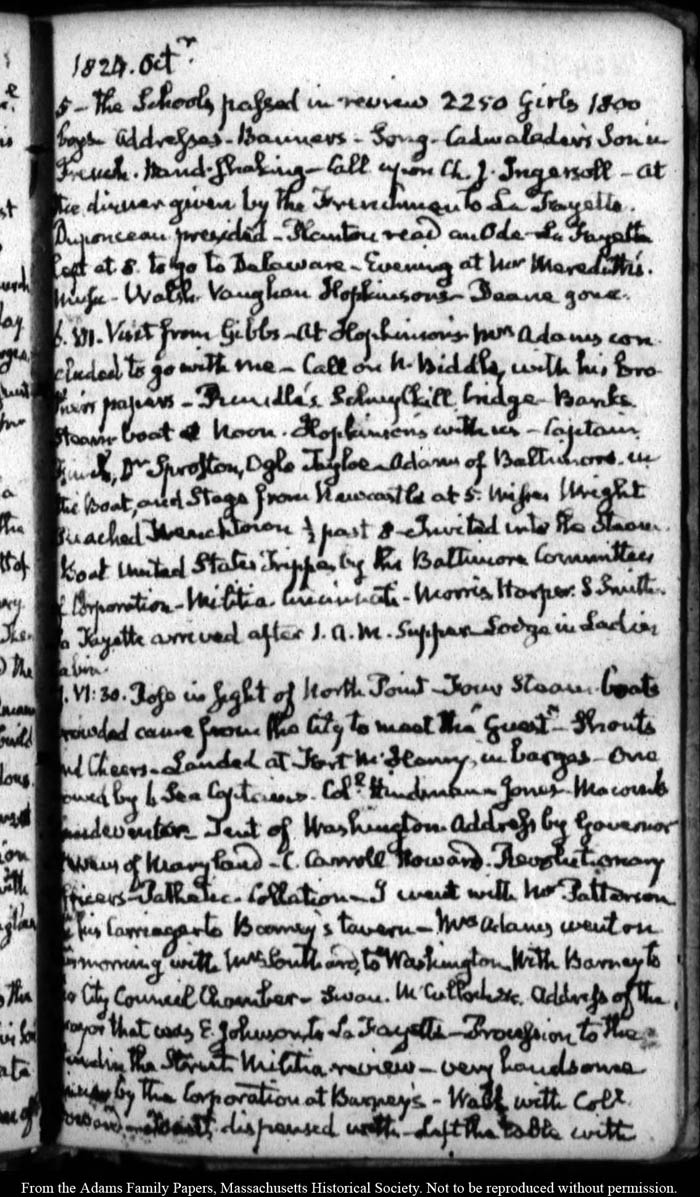 1824. Octr
5 - The Schools passed in review 2250 Girls 1800
boys Addresses - Banners - Song - Cadwalader's Son in
French. Hand-shaking - Call upon Ch. J. Ingersoll - At
the dinner given by the Frenchmen to La Fayette.
Duponceau presided - Planton read an Ode - La Fayette
left at 8. to go to Delaware - Evening at Mr Meredith's.
Music - Walsh Vaughan Hopkinsons - Deane gone.
6. VI. Visit from Gibbs - At Hopkinson's. Mrs Adams con
cluded to go with me - Call on N. Biddle, with his bro
ther's papers - Schuylkill bridge - Banks
Steam boat at Noon. Hopkinson's with us - Captain
Finch, Dr Sproston, Ogle Tayloe - Adams of Baltimore. in
the Boat, and Stage from Newcastle at 5. Misses Wright
reached Frenchtown ½ past 8 - Invited into the Steam.
boat United States, Tripp, by the Baltimore Committees
of Corporation - Militia. Cincinnati - Morris, Harper. S Smith.
La Fayette arrived after 1. A.M. Supper - Lodge in Ladies
cabin.
7. VI:30. Rose in sight of North Point - Four Steam boats
crowded came from the City to meet the "Guest" - Shouts
and Cheers - Landed at Fort McHenry, in barges - One
rowed by 6 Sea Captains. Cols Hindman - Jones - Macomb
Tent of Washington. Address by Governor
Stevens of Maryland - C. Carroll Howard. Revolutionary
Officers - Pathetic. Collation - I went with Mr Patterson
in his Carriage to Barney's tavern - Mrs Adams went on
this morning with Mrs Southard, to Washington. With Barney to
City Council Chamber - Swan. McCulloch &c. Address of the
Mayor that was E. Johnson, to La Fayette - Procession to the
in the Street Militia review - very handsome
dinner by the Corporation at Barney's - Walk with Col.
Howard - Toasts dispensed with - Left the table with
From the Adams Family Papers, Massachusetts Historical Society. Not to be reproduced without permission.